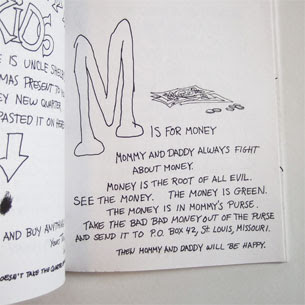 KIDS
E IS UNCLE SHEL
MAS PRESENT TO
EY NEW QUARTER
PASTED IT ON HERE
AND BUY ANYTHING
DOESN'T TAKE THE QUARTER
M
IS FOR MONEY
MOMMY AND DADDY ALWAYS FIGHT
ABOUT MONEY.
MONEY IS THE ROOT OF ALL EVIL.
SEE THE MONEY. THE MONEY IS GREEN.
THE MONEY IS IN MOMMY'S PURSE.
TAKE THE BAD BAD MONEY OUT OF THE PURSE
AND SEND IT TO P.O. BOX 42, ST. LOUIS, MISSOURI.
THEN MOMMY AND DADDY WILL BE HAPPY.